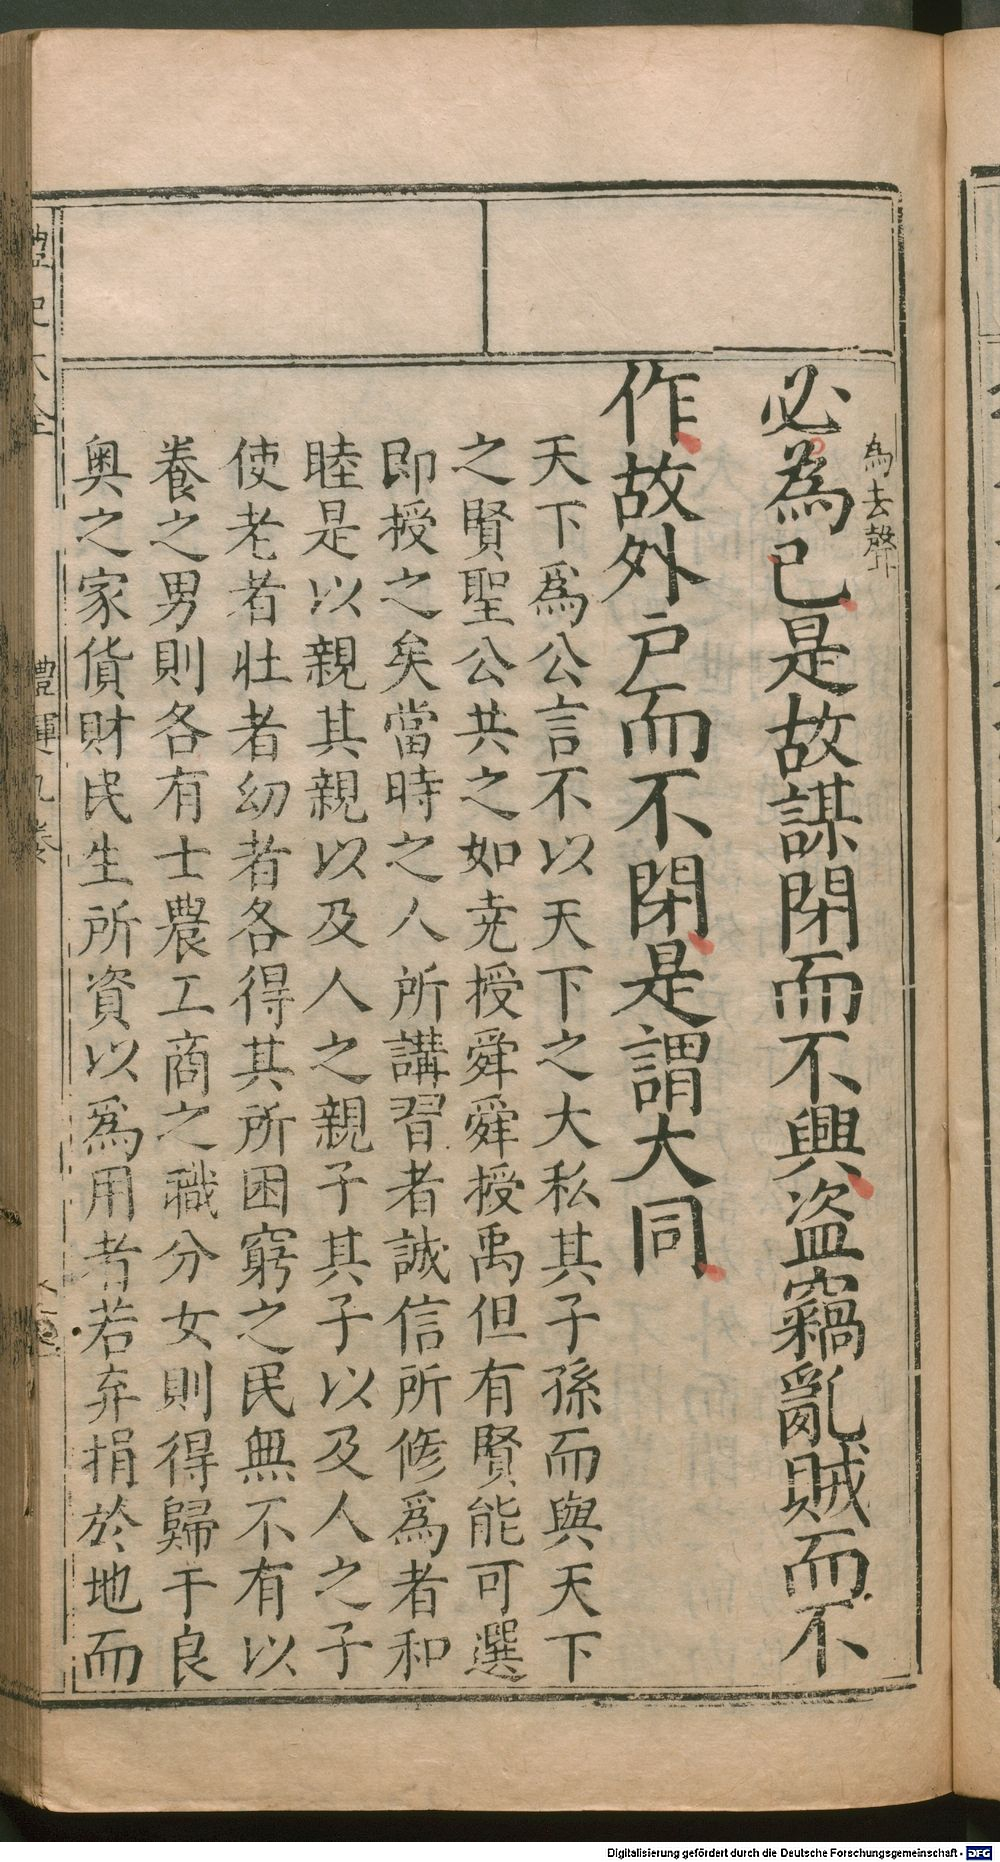 為去聲
必為己是故謀閉而不興盗竊亂賊而不
作故外戸而不閉是謂大同
天下爲公言不以天下之大私其子孫而與天下
之賢聖公共之如尭授舜舜授禹但有賢能可選
即授之矣當時之人所講習者誠信所修爲者和
睦是以親其親以及人之親子其子以及人之子
使老者壮者幼者各得其所困窮之民無不有以
養之男則各有士農工商之職分女則得歸于良
奥之家貨財民生所資以爲用者若弃捐於地而
禮記大全
禮運九卷
Digitalisierung gefördert durch die Deutsche Forschungsgemeinschaft - DFG